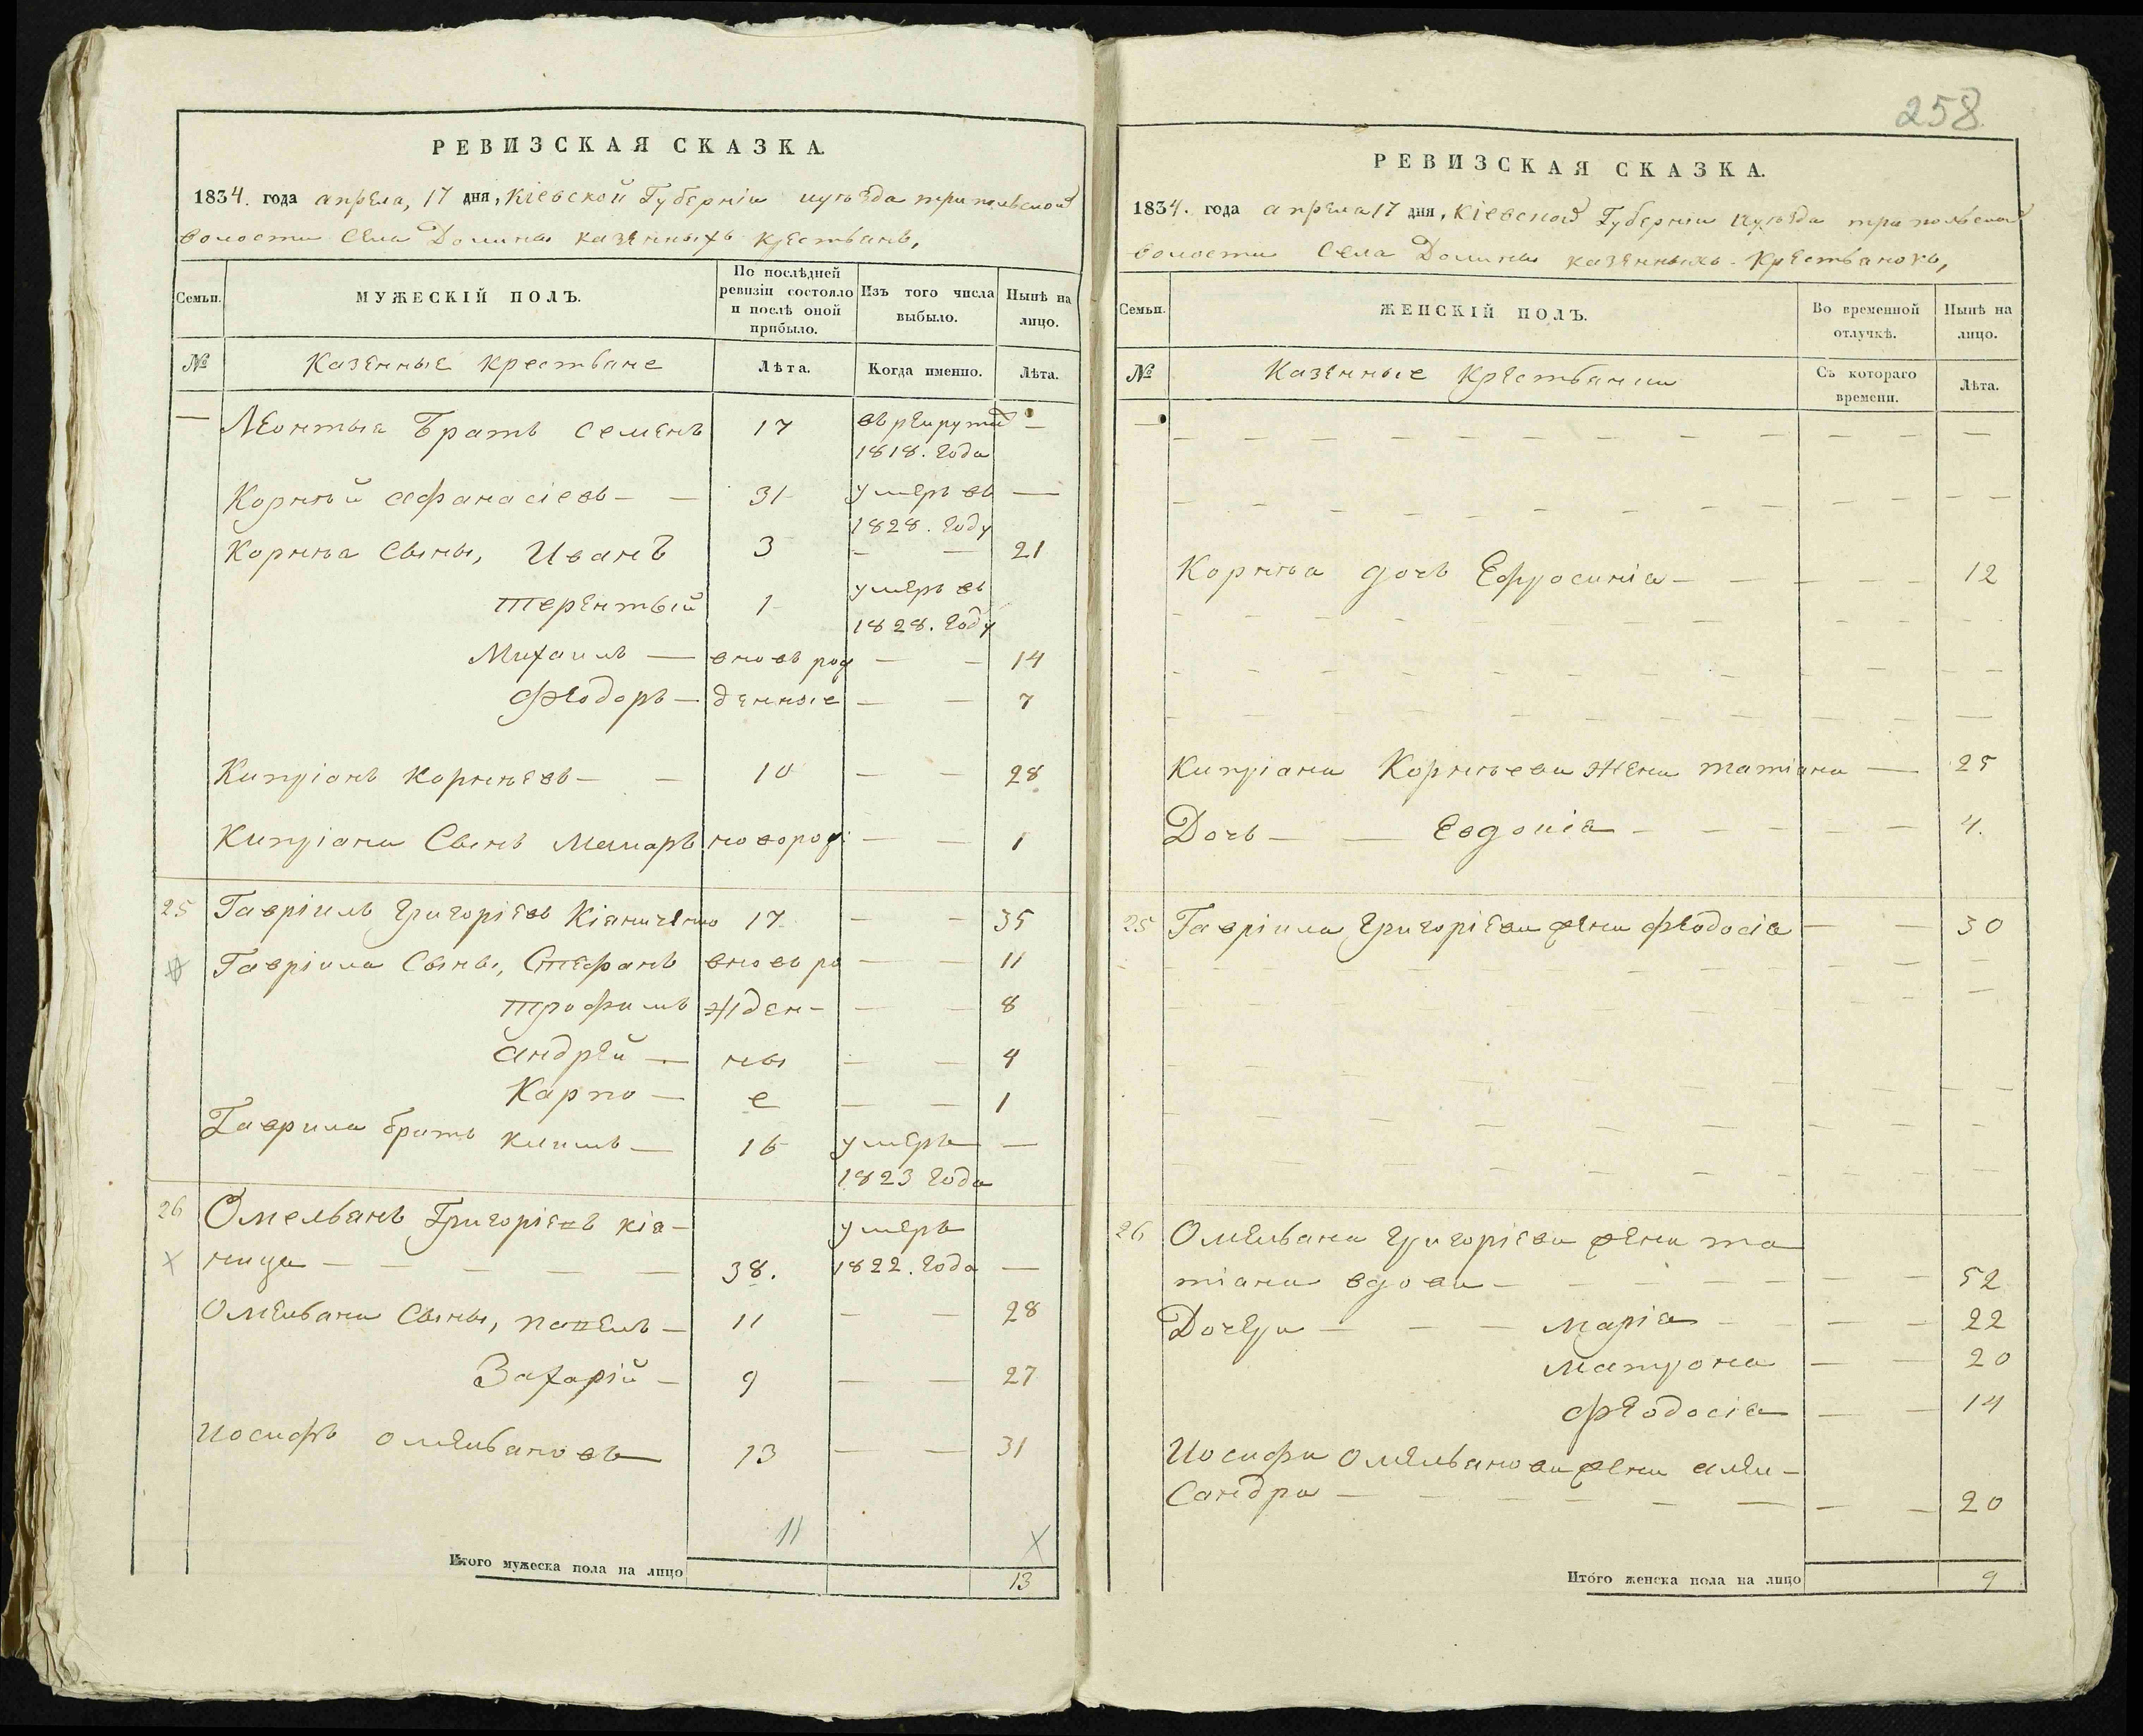 258
РЕВИЗСКАЯ СКАЗКА.
1834. года апреля, 17 дня, Кіевской Губерніи и уезда трипольской
волости Села Долины казенныхъ крестьянъ,
Семьи.
МУЖЕСКІЙ ПОЛЪ.
По послѣдней ревизіи состояло и послѣ оной прибыло.
Изъ того числа выбыло.
Нынѣ на лицо.
№ Казенные крестьяне Лѣта. Когда именно. Лѣта.
— Леонтыя Братъ Семенъ 17 въ рекруты —
1818. года
Корнѣй Афанасіевъ — — 31 умеръ въ —
1828. году
Корнѣя Сыны, Иванъ 3 — — 21
Терентый 1 умеръ въ
1828. году
Михаилъ — вновь рож — — 14
Феодоръ — денные — — 7
Кипріянъ Корнѣевъ — — 10 — — 28
Кипріяна Сынъ Макаръ новорож: — — 1
25 Гавріилъ Григоріевъ Кіяниченко 17 — — 35
Гавріила Сыны, Стефанъ вновь ро — — 11
Трофимъ жден- — — 8
Андрей — ны — — 4
Карпо — е — — 1
Гаврила братъ Климъ — 16 умеръ —
1823 года
26 Омельянъ Григоріевъ кія- умеръ
ница — — — — — 38. 1822. года —
Омельяна Сыны, Павелъ — 11 — — 28
Захарій — 9 — — 27
Иосифъ Омельяновъ — 13 — — 31
11 X
Итого мужеска пола на лицо 13
РЕВИЗСКАЯ СКАЗКА.
1834. года апреля 17 дня, Кіевской Губерніи и уезда трипольской
волости Села Долины казенныхъ крестьянокъ,
Семьи.
ЖЕНСКІЙ ПОЛЪ.
Во временной отлучкѣ.
Нынѣ на лицо.
№ Казенные Крестьянки Съ котораго времени. Лѣта.
Корнѣя дочь Ефросинія — — — — — 12
Кипріяна Корнѣева жена Татіяна — 25
Дочь — — Евдокія — — — — — 4.
25 Гавріила Григоріева жена Феодосія — — 30
26 Омельяна Григоріева жена Та
тіяна вдова — — — — — — — 52
Дочери — — — Марія — — — — 22
Матрона — — 20
Феодосія — — 14
Иосифа Омельянова жена Алек-
сандра — — — — — — — — 20
Итого женска пола на лицо 9